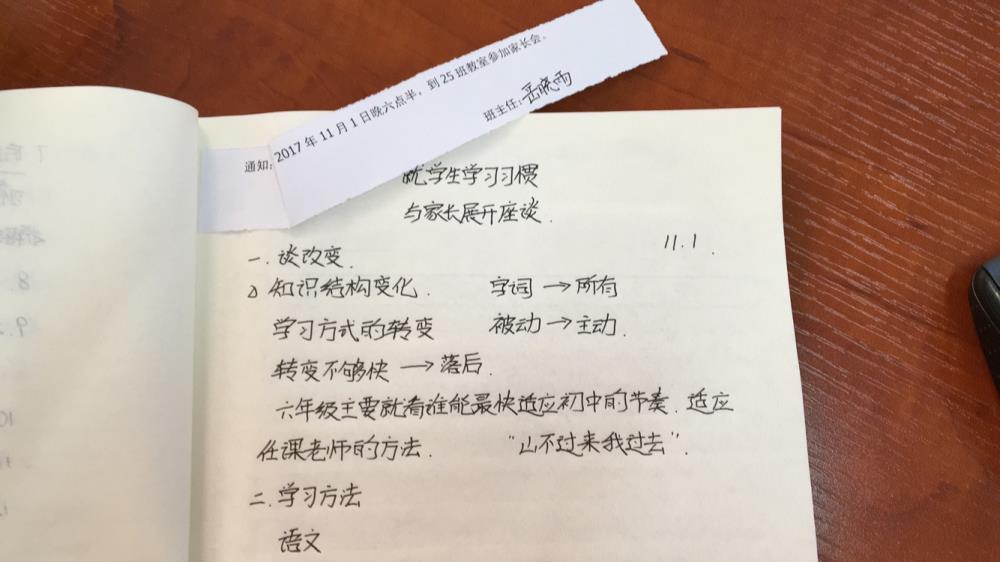 通知：2017年11月1日晚六点半，到25班教室参加家长会。
班主任：岳晓雨
就学生学习习惯
与家长展开座谈.
11.1.
一.谈改变.
知识结构变化. 字词→所有
学习方式的转变 被动→主动.
转变不够快→落后.
六年级主要就看谁能最快适应初中的节奏.适应
任课老师的方法. “山不过来我过去”.
二.学习方法
语文
7
8.
9.
10